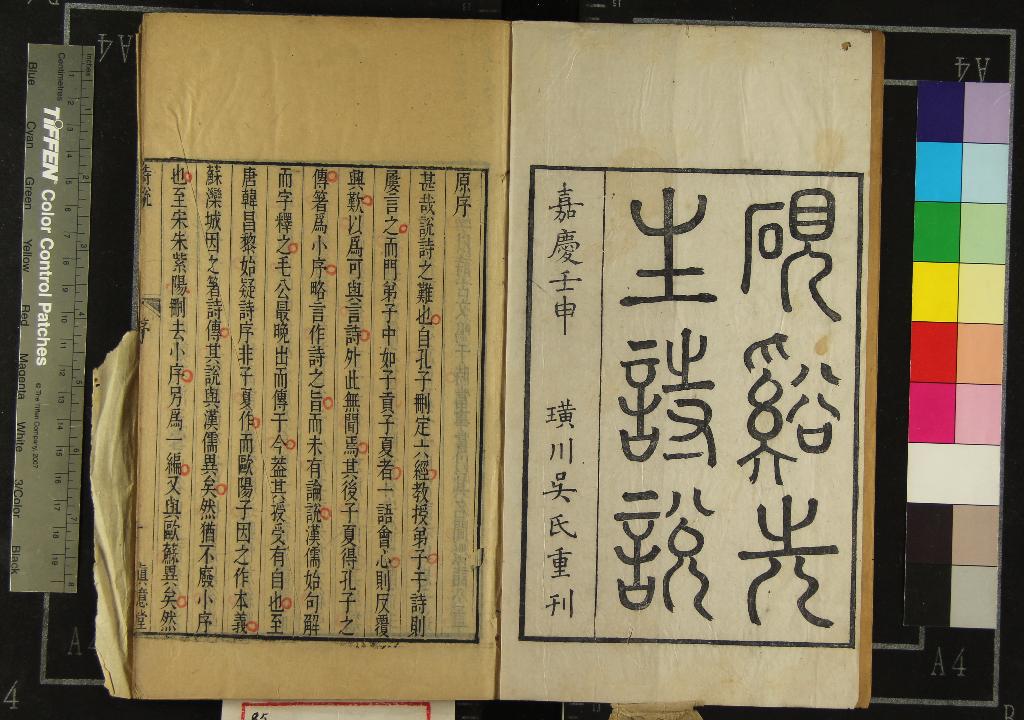 硯谿先
生詩說
嘉慶壬申 璜川吳氏重刊
原序
甚哉說詩之難也自孔子刪定六經教授弟子于詩則
屢言之而門弟子中如子貢子夏者一語會心則反覆
興歎以爲可與言詩外此無聞焉其後子夏得孔子之
傳箸爲小序略言作詩之旨而未有論說漢儒始句解
而字釋之毛公最晚出而傳于今葢其授受有自也至
唐韓昌黎始疑詩序非子夏作而歐陽子因之作本義
蘇灤城因之著詩傳其說與漢儒異矣然猶不廢小序
也至宋朱紫陽刪去小序另爲一編又與歐蘇異矣然
詩說 序 一 眞意堂
Inches
Centimetres
TIFFEN Color Control Patches
© The Tiffen Company, 2007
Blue Cyan Green Yellow Red Magenta White 3/Color Black
A4
A4
A4
A4
4